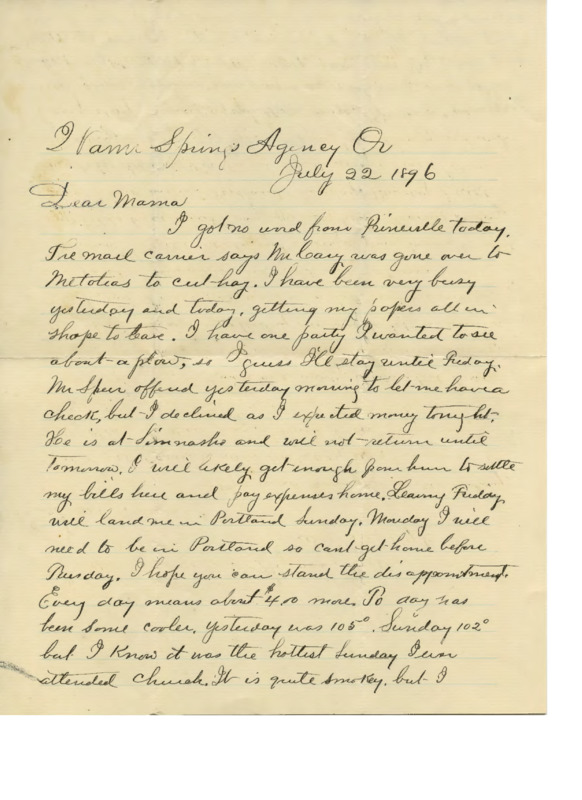 Warm Springs Agency Or
July 22 1896
Dear Mama
I got no word from Prineville today.
The mail carrier says Mr Cary was gone over to
Metolias to cut hay. I have been very busy
yesterday and today, getting my papers all in
shape to leave. I have one party I wanted to see
about a plow, so I guess I'll stay until Friday.
Mr Speir offered yesterday morning to let me have a
check, but I declined as I expected money tonight.
He is at Simnasho and will not return until
Tomorrow. I will likely get enough from him to settle
my bills here and pay expenses home. Leaving Friday
will land me in Portland Sunday. Monday I will
need to be in Portland so can't get home before
Tuesday. I hope you can stand the disappointment.
Every day means about $4.00 more. To day has
been some cooler. yesterday was 105°. Sunday 102°
but I know it was the hottest Sunday I ever
attended church. It is quite smokey, but I